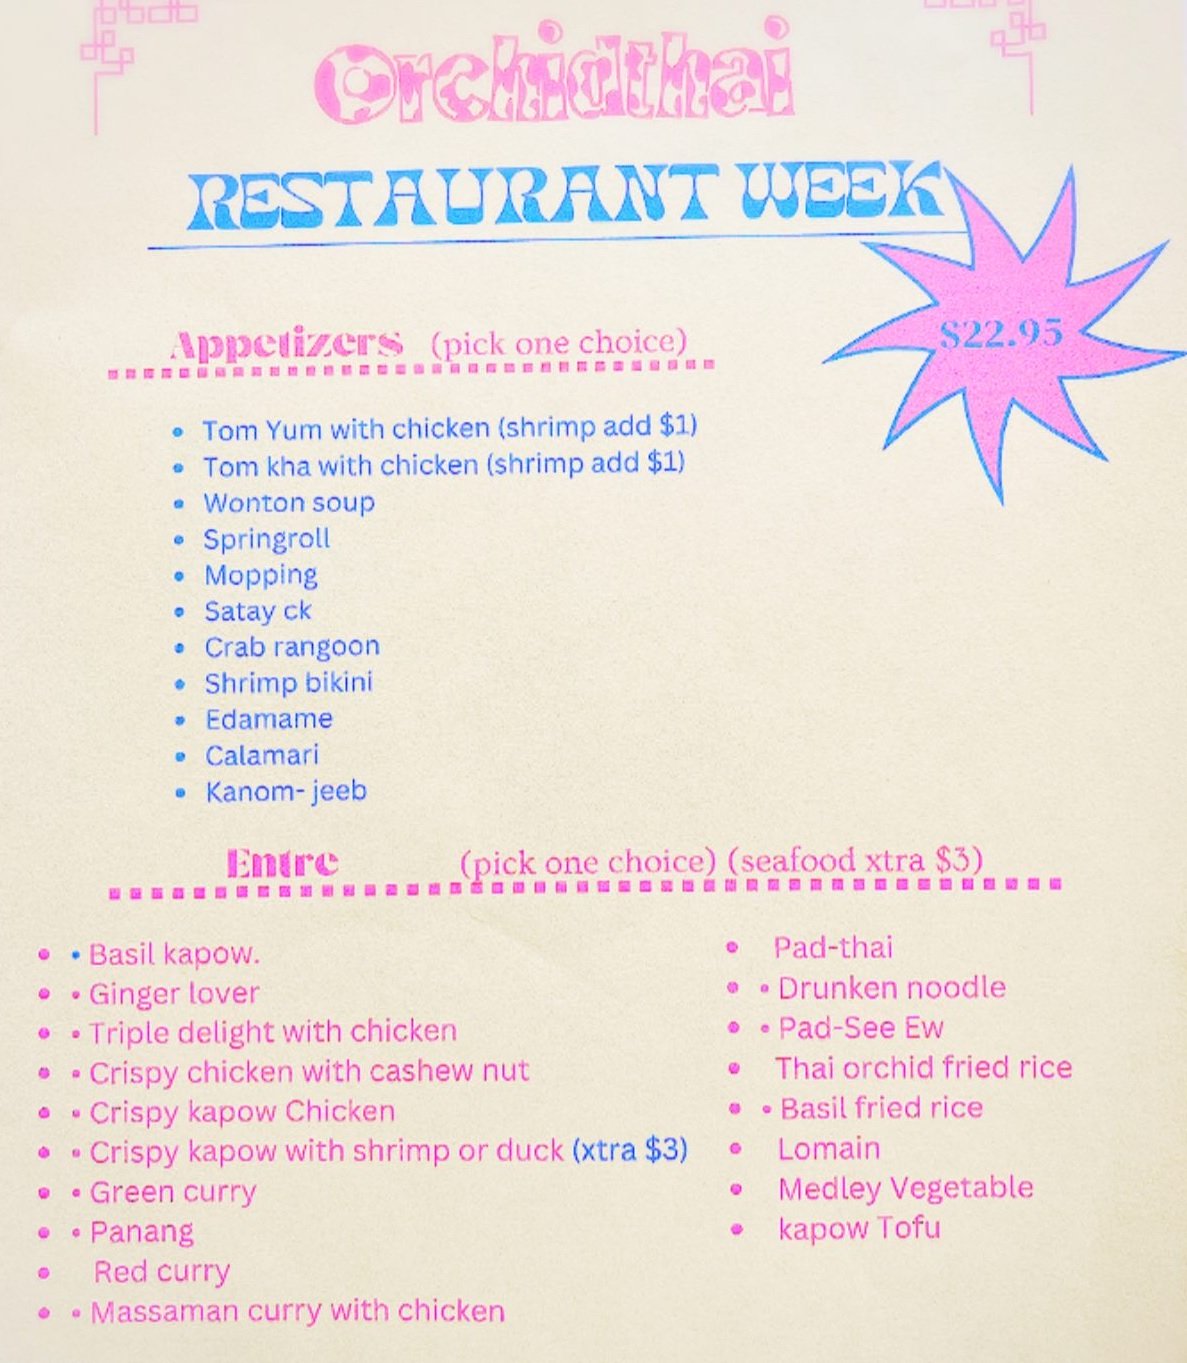 Orchidthai
RESTAURANT WEEK
$22.95
Appetizers (pick one choice)
• Tom Yum with chicken (shrimp add $1)
• Tom kha with chicken (shrimp add $1)
• Wonton soup
• Springroll
• Mopping
• Satay ck
• Crab rangoon
• Shrimp bikini
• Edamame
• Calamari
• Kanom- jeeb
Entre (pick one choice) (seafood xtra $3)
• • Basil kapow.
• • Ginger lover
• • Triple delight with chicken
• • Crispy chicken with cashew nut
• • Crispy kapow Chicken
• • Crispy kapow with shrimp or duck (xtra $3)
• • Green curry
• • Panang
• Red curry
• • Massaman curry with chicken
• Pad-thai
• • Drunken noodle
• • Pad-See Ew
• Thai orchid fried rice
• • Basil fried rice
• Lomain
• Medley Vegetable
• kapow Tofu